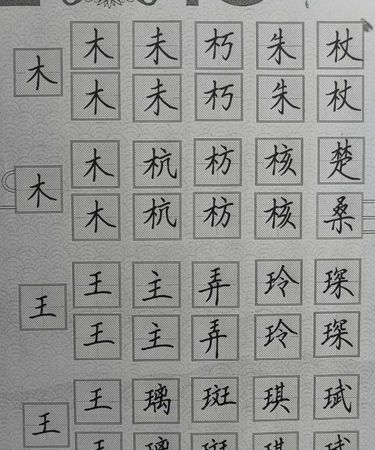 木 木 未 朽 朱 杖
木 未 朽 朱 杖
木 木 杭 枋 核 楚
木 杭 枋 核 桑
王 王 主 弄 玲 琛
王 主 弄 玲 琛
王 王 璃 斑 琪 斌
王 璃 斑 琪